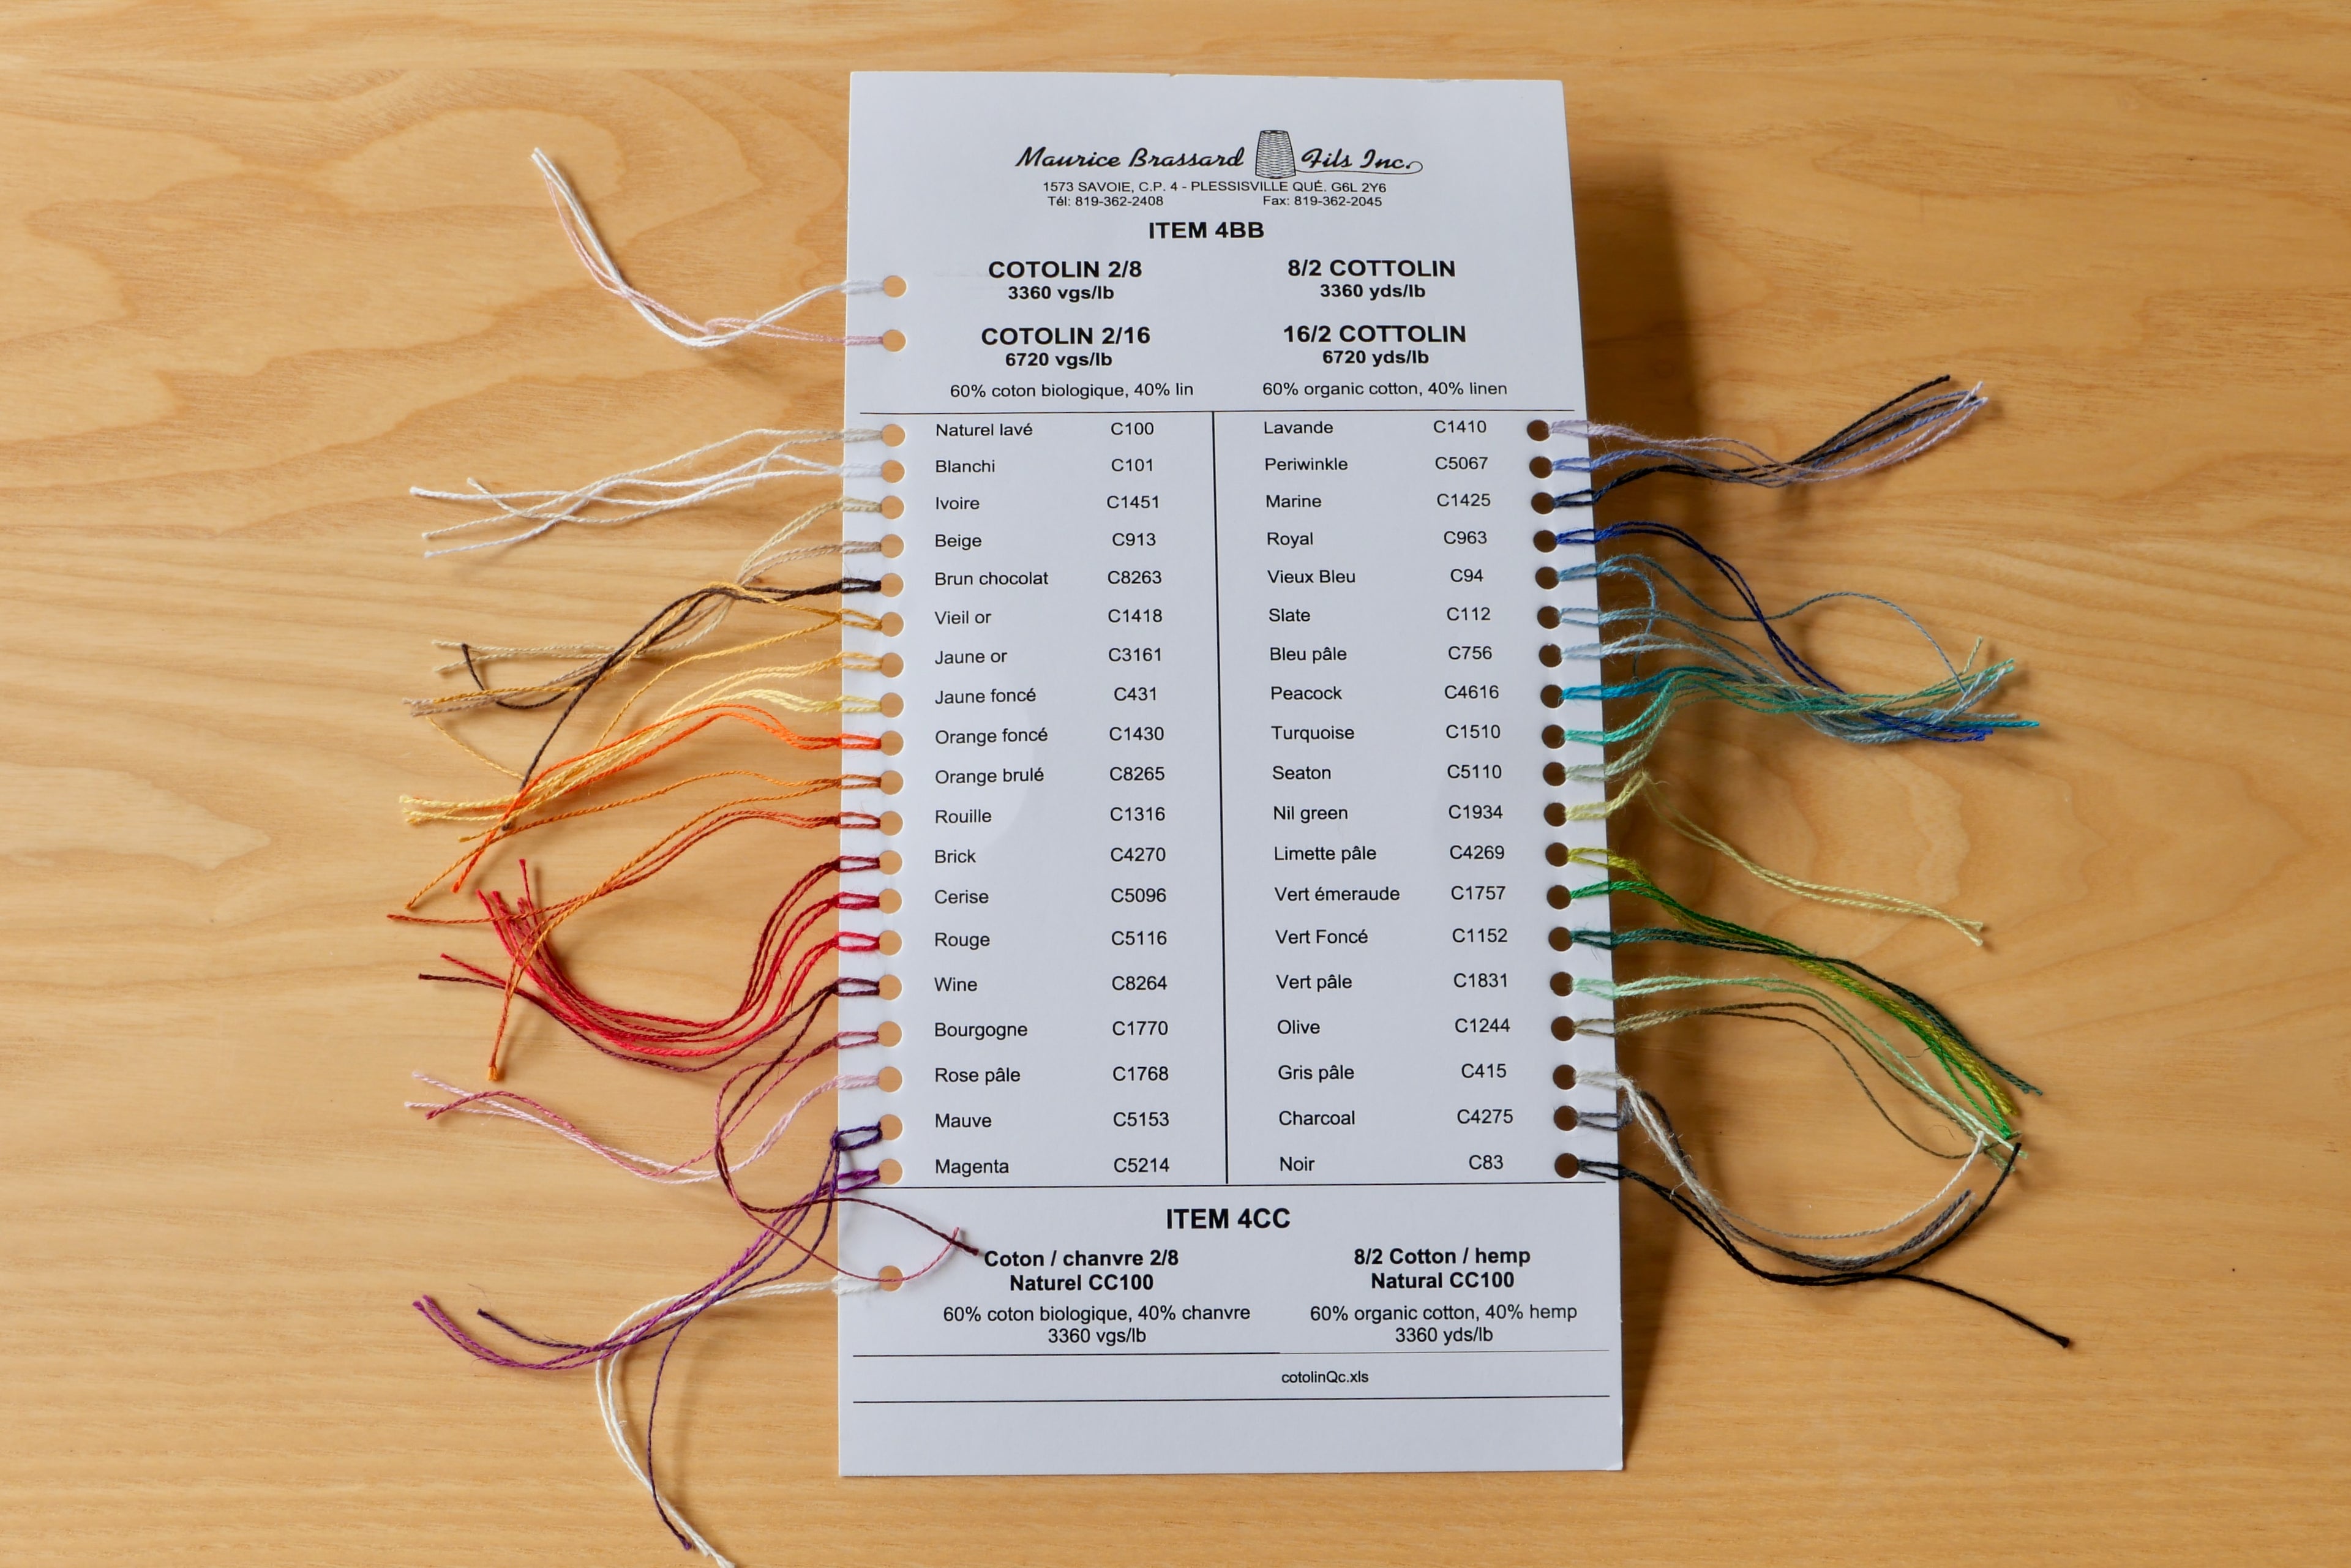 Maurice Brassard Fils Inc.
1573 SAVOIE, C.P. 4 - PLESSISVILLE QUÉ. G6L 2Y6
Tél: 819-362-2408 Fax: 819-362-2045
ITEM 4BB
COTOLIN 2/8 8/2 COTTOLIN
3360 vgs/lb 3360 yds/lb
COTOLIN 2/16 16/2 COTTOLIN
6720 vgs/lb 6720 yds/lb
60% coton biologique, 40% lin 60% organic cotton, 40% linen
Naturel lavé C100 Lavande C1410
Blanchi C101 Periwinkle C5067
Ivoire C1451 Marine C1425
Beige C913 Royal C963
Brun chocolat C8263 Vieux Bleu C94
Vieil or C1418 Slate C112
Jaune or C3161 Bleu pâle C756
Jaune foncé C431 Peacock C4616
Orange foncé C1430 Turquoise C1510
Orange brulé C8265 Seaton C5110
Rouille C1316 Nil green C1934
Brick C4270 Limette pâle C4269
Cerise C5096 Vert émeraude C1757
Rouge C5116 Vert Foncé C1152
Wine C8264 Vert pâle C1831
Bourgogne C1770 Olive C1244
Rose pâle C1768 Gris pâle C415
Mauve C5153 Charcoal C4275
Magenta C5214 Noir C83
ITEM 4CC
Coton / chanvre 2/8 8/2 Cotton / hemp
Naturel CC100 Natural CC100
60% coton biologique, 40% chanvre 60% organic cotton, 40% hemp
3360 vgs/lb 3360 yds/lb
cotolinQc.xls